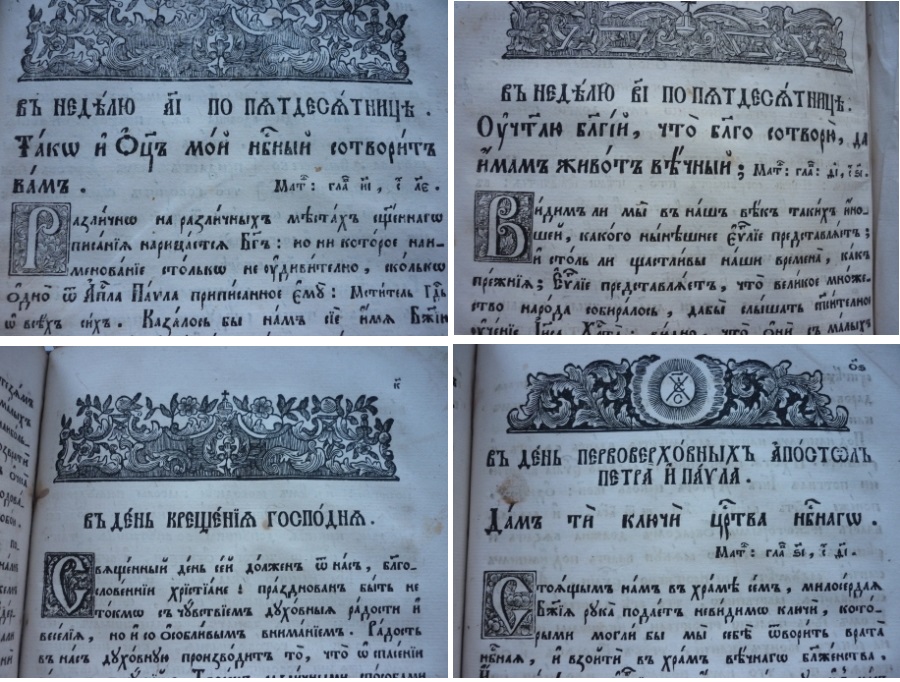 въ недѣ́лю а҃і по пѧтдесѧ́тницѣ .
Та́кѡ и҆ Ѻ҆ц҃ъ мо́й нбⷭ҇ный сотвори́тъ
ва́мъ .
Матѳ : гла҃ и҃і , с҃ л҃е .
Разли́чнѡ на разли́чныхъ мѣста́хъ сщ҃е́ннагѡ
писа́нїѧ нарица́етсѧ Бг҃ъ : но ни кото́рое наи-
менова́нїе сто́лькѡ не ᲂу҆диви́телно , ско́лькѡ
ѻ҆дно̀ ѿ А҆пⷭ҇ла Па́ѵла припи́санное є҆мꙋ̀ : Мсти́тель Гдⷭ҇ь
ѡ҆ всѣ́хъ си́хъ . Каза́лось бы на́мъ сїѐ и҆́мѧ Бж҃їи
въ недѣ́лю в҃і по пѧтдесѧ́тницѣ .
Оу҆чт҃лю бл҃гі́й , что̀ бл҃го сотворю̀ , да
и҆́мамъ живо́тъ вѣ́чный ;
Матѳ : гла҃ : ѳ҃і , с҃ ѕ҃і .
Ви́димъ ли мы̀ въ на́шъ вѣ́къ таки́хъ ю҆́но-
шей , како́го ны́нѣшнее є҆ѵⷢ҇лїе представлѧ́етъ ;
И҆ сто́ль ли щастли́вы на́ши времена̀ , ка́къ
пре́жнїѧ ; Є҆ѵⷢ҇лїе представлѧ́етъ , что̀ вели́кое мно́же-
ство наро́да собира́лось , дабы̀ слы́шать сп҃си́телно
ᲂу҆че́нїе І҆и҃са Хрⷭ҇та̀ : ви́дно , что̀ ѻ҆нѝ съ ма́лыхъ
к҃
въ де́нь креще́нїѧ госпо́днѧ .
Свѧще́нный де́нь се́й до́лженъ ѿ на́съ , бл҃го-
слове́ннїи хрїстїа́не : пра́зднованъ бы́ть не
то́кмѡ съ чꙋ́вствїемъ дꙋхо́вныѧ ра́дости и҆
весе́лїѧ , но и҆ со ѻ҆со́бливымъ внима́нїемъ . Ра́дость
въ на́съ дꙋхо́внꙋю произво́дитъ то̀ , что̀ ѡ҆ спасе́нїи
ѻ҃ѕ
въ де́нь первоверхо́вныхъ а҆по́столъ
петра̀ и҆ па́ѵла .
Да́мъ тѝ ключѝ црⷭ҇тва нбⷭ҇нагѡ .
Матѳ : гла҃ ѕ҃і , с҃ ѳ҃і .
Стоѧ́щымъ на́мъ въ хра́мѣ се́мъ , милосе́рдаѧ
Бж҃їѧ рꙋка̀ подае́тъ неви́димѡ ключѝ , кото-
рыми моглѝ бы мы̀ себѣ̀ ѿвори́ть врата̀
нбⷭ҇наѧ , и҆ взойтѝ въ хра́мъ вѣ́чнагѡ блаже́нства ,